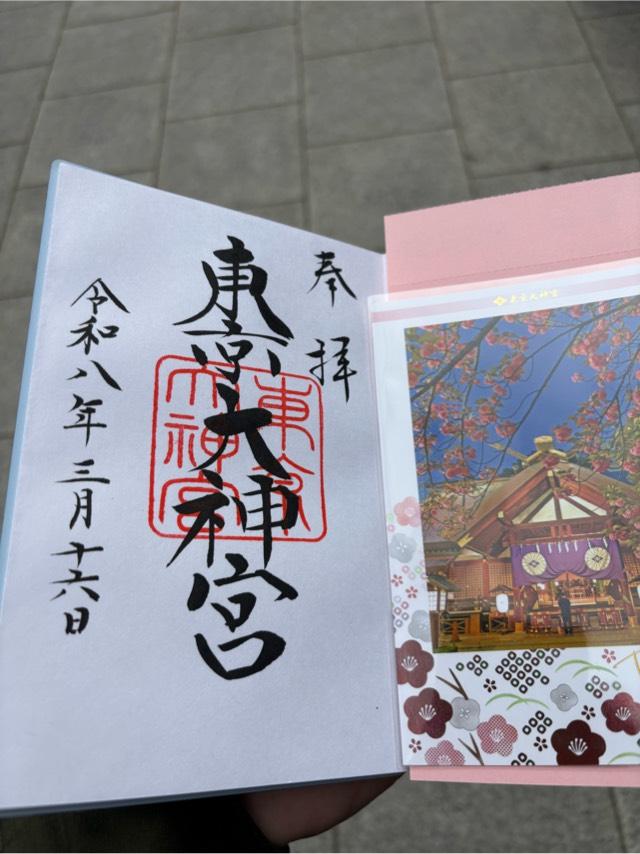 奉拝
東京大神宮
東京
大神宮
令和八年三月十六日
東京大神宮